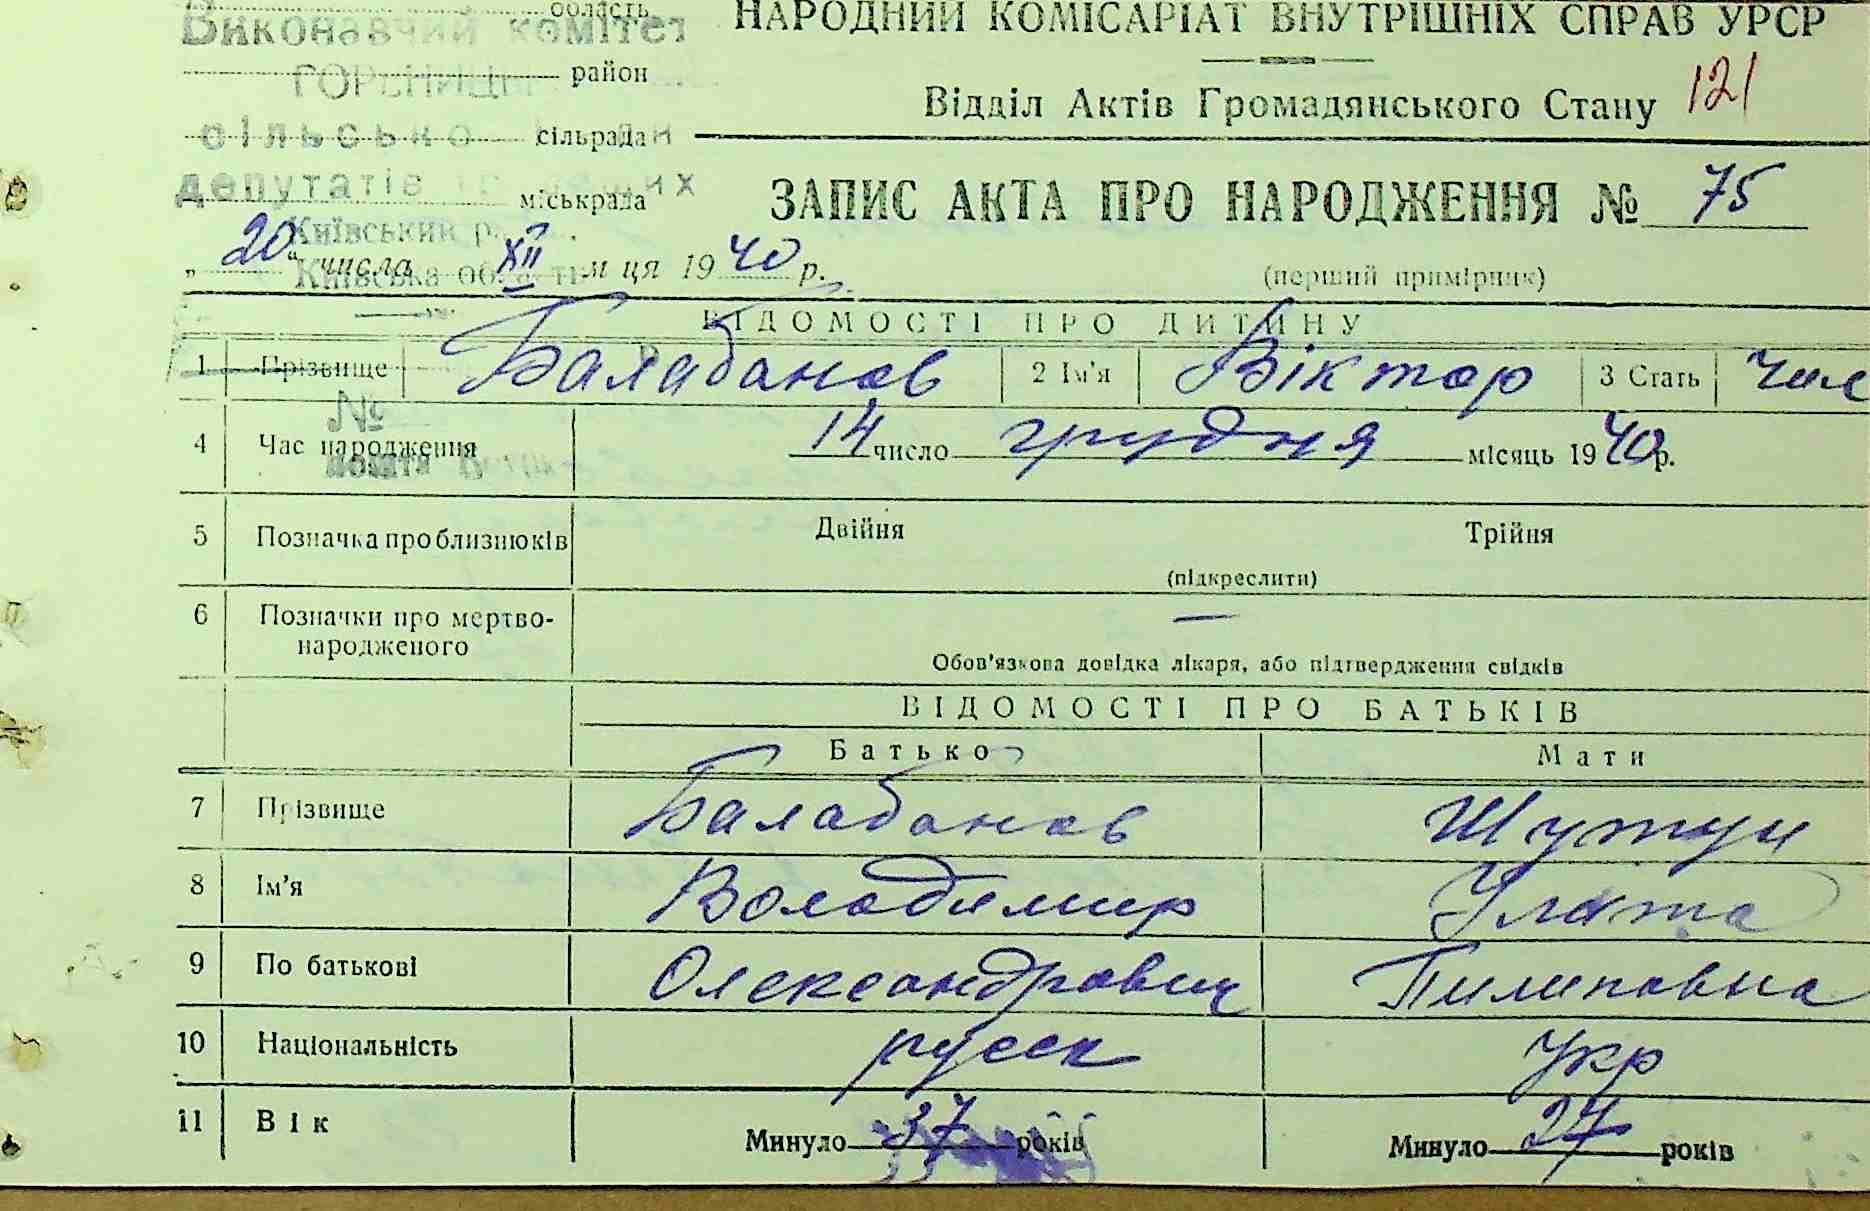 область
Виконавчий комітет
НАРОДНИЙ КОМІСАРІАТ ВНУТРІШНІХ СПРАВ УРСР
район
Відділ Актів Громадянського Стану 121
сільрада
депутатів
міськрада
ЗАПИС АКТА ПРО НАРОДЖЕННЯ № 75
Київський р.
„20“ числа XII м ця 1940 р.
(перший примірник)
ВІДОМОСТІ ПРО ДИТИНУ
1 Прізвище Балабанов 2 Ім'я Віктор 3 Стать Чол
№
4 Час народження 14 число грудня місяць 1940 р.
5 Позначка про близнюків Двійня Трійня
(підкреслити)
6 Позначки про мертво-
народженого —
Обов'язкова довідка лікаря, або підтвердження свідків
ВІДОМОСТІ ПРО БАТЬКІВ
Батько Мати
7 Прізвище Балабанов
8 Ім'я Володимир
9 По батькові Олександрович Пилиповна
10 Національність русск Укр
11 Вік Минуло 37 років Минуло 27 років